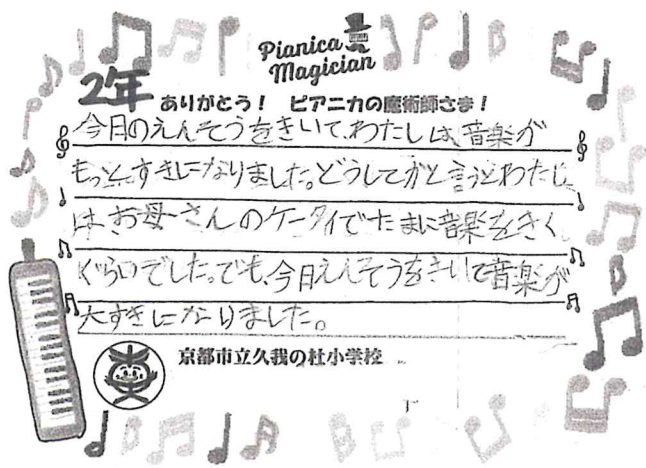 Pianica
Magician
2年
ありがとう! ピアニカの魔術師さま!
今日のえんそうをきいて、わたしは、音楽が
もっとすきになりました。どうしてかと言うとわたし
はお母さんのケータイでたまに音楽をきく
ぐらいでした。でも、今日えんそうをきいて音楽が
大すきになりました。
京都市立久我の杜小学校